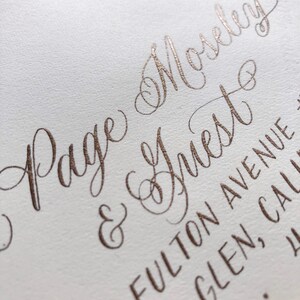 Page Moseley
& Guest
FULTON AVENUE
GLEN, CALI